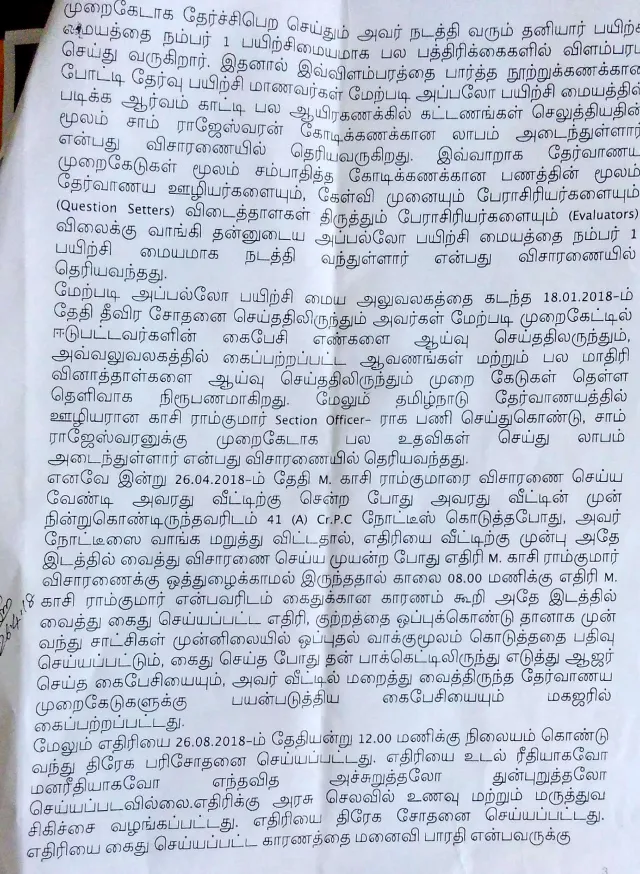 முறைகேடாக தேர்ச்சிபெற செய்தும் அவர் நடத்தி வரும் தனியார் பயிற்சி
மையத்தை நம்பர் 1 பயிற்சிமையமாக பல பத்திரிக்கைகளில் விளம்பரம்
செய்து வருகிறார். இதனால் இவ்விளம்பரத்தை பார்த்த நூற்றுக்கணக்கான
போட்டி தேர்வு பயிற்சி மாணவர்கள் மேற்படி அப்பலோ பயிற்சி மையத்தில்
படிக்க ஆர்வம் காட்டி பல ஆயிரகணக்கில் கட்டணங்கள் செலுத்தியதின்
மூலம் சாம் ராஜேஸ்வரன் கோடிக்கணக்கான லாபம் அடைந்துள்ளார்
என்பது விசாரணையில் தெரியவருகிறது. இவ்வாறாக தேர்வாணய
முறைகேடுகள் மூலம் சம்பாதித்த கோடிக்கணக்கான பணத்தின் மூலம்
தேர்வாணய ஊழியர்களையும், கேள்வி முனையும் பேராசிரியர்களையும்
(Question Setters) விடைத்தாளகள் திருத்தும் பேராசிரியர்களையும் (Evaluators)
விலைக்கு வாங்கி தன்னுடைய அப்பல்லோ பயிற்சி மையத்தை நம்பர் 1
பயிற்சி மையமாக நடத்தி வந்துள்ளார் என்பது விசாரணையில்
தெரியவந்தது.
மேற்படி அப்பல்லோ பயிற்சி மைய அலுவலகத்தை கடந்த 18.01.2018-ம்
தேதி தீவிர சோதனை செய்ததிலிருந்தும் அவர்கள் மேற்படி முறைகேட்டில்
ஈடுபட்டவர்களின் கைபேசி எண்களை ஆய்வு செய்ததிலருந்தும்,
அவ்வலுவலகத்தில் கைப்பற்றப்பட்ட ஆவணங்கள் மற்றும் பல மாதிரி
வினாத்தாள்களை ஆய்வு செய்ததிலிருந்தும் முறை கேடுகள் தெள்ள
தெளிவாக நிரூபணமாகிறது. மேலும் தமிழ்நாடு தேர்வாணயத்தில்
ஊழியரான காசி ராம்குமார் Section Officer- ராக பணி செய்துகொண்டு, சாம்
ராஜேஸ்வரனுக்கு முறைகேடாக பல உதவிகள் செய்து லாபம்
அடைந்துள்ளார் என்பது விசாரணையில் தெரியவந்தது.
எனவே இன்று 26.04.2018-ம் தேதி M. காசி ராம்குமாரை விசாரணை செய்ய
வேண்டி அவரது வீட்டிற்கு சென்ற போது அவரது வீட்டின் முன்
நின்றுகொண்டிருந்தவரிடம் 41 (A) Cr.P.C நோட்டீஸ் கொடுத்தபோது, அவர்
நோட்டீஸை வாங்க மறுத்து விட்டதால், எதிரியை வீட்டிற்கு முன்பு அதே
இடத்தில் வைத்து விசாரணை செய்ய முயன்ற போது எதிரி M. காசி ராம்குமார்
விசாரணைக்கு ஒத்துழைக்காமல் இருந்ததால் காலை 08.00 மணிக்கு எதிரி M.
காசி ராம்குமார் என்பவரிடம் கைதுக்கான காரணம் கூறி அதே இடத்தில்
வைத்து கைது செய்யப்பட்ட எதிரி, குற்றத்தை ஒப்புக்கொண்டு தானாக முன்
வந்து சாட்சிகள் முன்னிலையில் ஒப்புதல் வாக்குமூலம் கொடுத்ததை பதிவு
செய்யப்பட்டும், கைது செய்த போது தன் பாக்கெட்டிலிருந்து எடுத்து ஆஜர்
செய்த கைபேசியையும், அவர் வீட்டில் மறைத்து வைத்திருந்த தேர்வாணய
முறைகேடுகளுக்கு பயன்படுத்திய கைபேசியையும் மகஜரில்
கைப்பற்றப்பட்டது.
மேலும் எதிரியை 26.08.2018-ம் தேதியன்று 12.00 மணிக்கு நிலையம் கொண்டு
வந்து திரேக பரிசோதனை செய்யப்பட்டது. எதிரியை உடல் ரீதியாகவோ
மனரீதியாகவோ எந்தவித அச்சுறுத்தலோ துன்புறுத்தலோ
செய்யப்படவில்லை.எதிரிக்கு அரசு செலவில் உணவு மற்றும் மருத்துவ
சிகிச்சை வழங்கப்பட்டது. எதிரியை திரேக சோதனை செய்யப்பட்டது.
எதிரியை கைது செய்யப்பட்ட காரணத்தை மனைவி பாரதி என்பவருக்கு
3